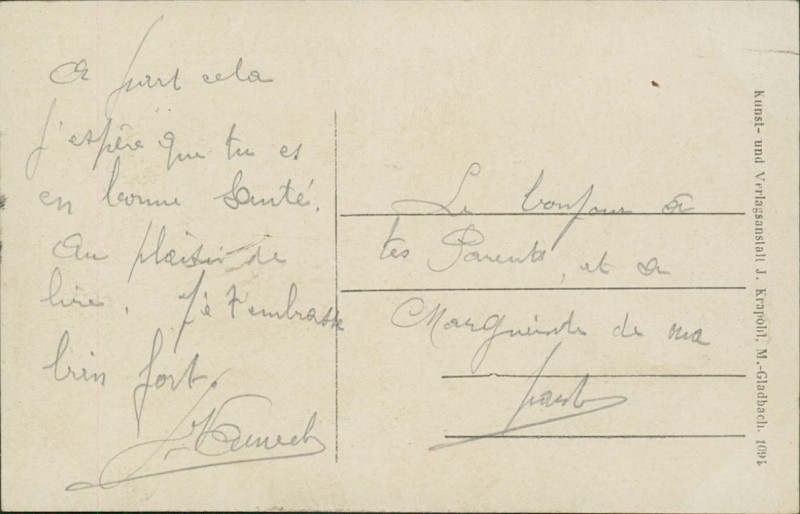 A part cela
j'espère que tu es
en bonne Santé.
Au plaisir de
lire. Je t'embrasse
bien fort.
Le bonjour à
tes Parents, et à
Marguerite de ma
part
Kunst- und Verlagsanstalt J. Krapohl, M.-Gladbach. 1094